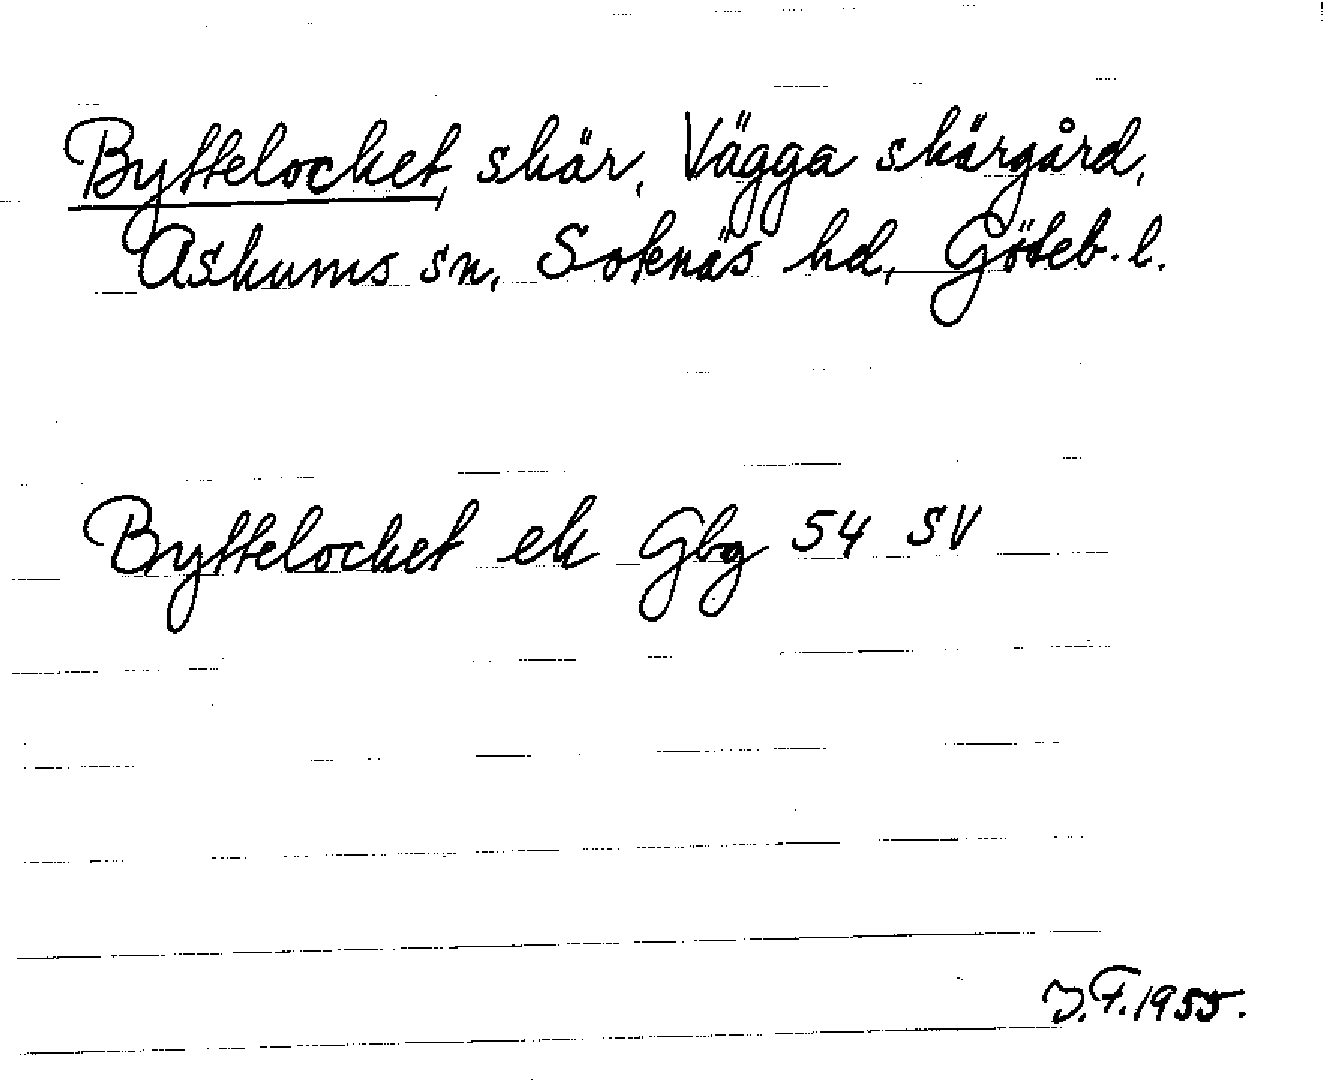 Byttelocket, skär, Vägga skärgård,
Askums sn, Sotenäs hd, Göteb. l.
Byttelocket ek Gbg 54 SV
J.F. 1955.